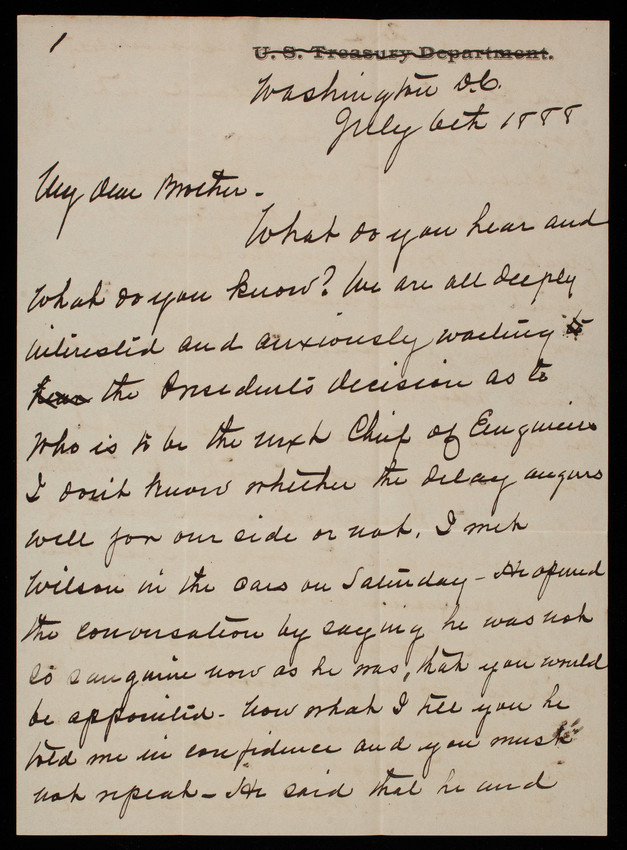 1
U. S. Treasury Department.
Washington D.C.
July 6th 1888
My Dear Brother -
What do you hear and
What do you know? We are all deeply
interested and anxiously waiting to
hear the President's decision as to
who is to be the next Chief of Engineers
I don't know whether the delay augurs
well for our side or not. I met
Wilson in the cars on Saturday - He opened
the conversation by saying he was not
so sanguine now as he was, that you would
be appointed - Now what I tell you he
told me in confidence and you must
not repeat - He said that he and